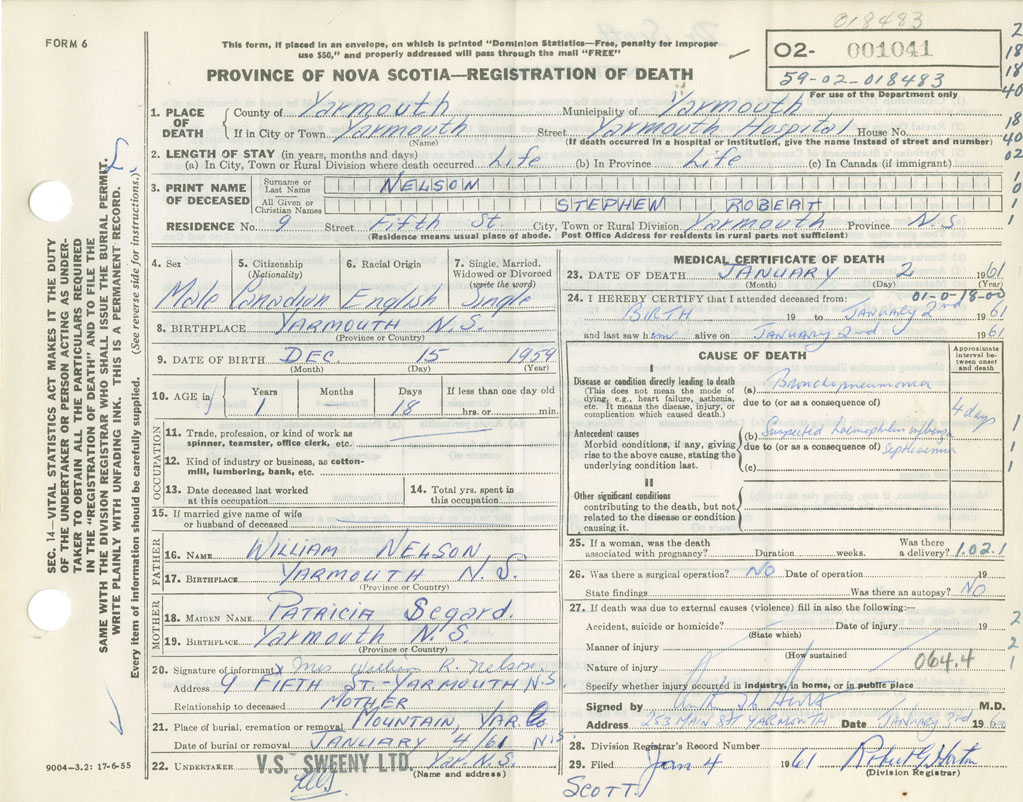 018483
FORM 6
This form, if placed in an envelope, on which is printed "Dominion Statistics—Free, penalty for improper
use $50," and properly addressed will pass through the mail "FREE"
PROVINCE OF NOVA SCOTIA—REGISTRATION OF DEATH
02- 001041
59-02-018483
For use of the Department only
2
18
18
40
18
40
02
1. PLACE OF DEATH County of Yarmouth Municipality of Yarmouth
If in City or Town Yarmouth Street Yarmouth Hospital House No.
(Name) (If death occurred in a hospital or institution, give the name instead of street and number)
2. LENGTH OF STAY (in years, months and days)
(a) In City, Town or Rural Division where death occurred Life (b) In Province Life (c) In Canada (if immigrant)
3. PRINT NAME OF DECEASED Surname or Last Name NELSON
All Given or Christian Names STEPHEN ROBERT
RESIDENCE No. 9 Fifth St. City, Town or Rural Division Yarmouth Province N.S
(Residence means usual place of abode. Post Office Address for residents in rural parts not sufficient)
4. Sex 5. Citizenship (Nationality) 6. Racial Origin 7. Single, Married, Widowed or Divorced (write the word)
Male Canadian English Single
8. BIRTHPLACE YARMOUTH N.S.
(Province or Country)
9. DATE OF BIRTH DEC. 15 1959
(Month) (Day) (Year)
10. AGE in Years Months Days If less than one day old
1 — 18 hrs. or min.
OCCUPATION
11. Trade, profession, or kind of work as
spinner, teamster, office clerk, etc.
12. Kind of industry or business, as cotton-
mill, lumbering, bank, etc.
13. Date deceased last worked
at this occupation
14. Total yrs. spent in
this occupation
15. If married give name of wife
or husband of deceased
FATHER
16. NAME WILLIAM NELSON
17. BIRTHPLACE YARMOUTH N.S.
(Province or Country)
MOTHER
18. MAIDEN NAME PATRICIA Segard.
19. BIRTHPLACE Yarmouth N.S.
(Province or Country)
20. Signature of informant X Mrs William R. Nelson
Address 9 FIFTH ST.-YARMOUTH N.S
Relationship to deceased MOTHER
21. Place of burial, cremation or removal MOUNTAIN, YAR. Co
Date of burial or removal JANUARY 4/61 N.S
22. UNDERTAKER V.S. SWEENY LTD. Yar. N.S.
(Name and address)
MEDICAL CERTIFICATE OF DEATH
23. DATE OF DEATH JANUARY 2 1961
(Month) (Day) (Year)
24. I HEREBY CERTIFY that I attended deceased from: 01-0-18-00
BIRTH 19 to JANUARY 2nd 1961
and last saw him alive on JANUARY 2nd 1961
CAUSE OF DEATH
Approximate
interval be-
tween onset
and death
I
Disease or condition directly leading to death
(This does not mean the mode of
dying, e.g., heart failure, asthenia,
etc. It means the disease, injury, or
complication which caused death.)
(a) Bronchopneumonia
due to (or as a consequence of)
4 days
Antecedent causes
Morbid conditions, if any, giving
rise to the above cause, stating the
underlying condition last.
(b) Suspected haemophilus influenza
due to (or as a consequence of) septicaemia
(c)
II
Other significant conditions
contributing to the death, but not
related to the disease or condition
causing it.
25. If a woman, was the death
associated with pregnancy? Duration weeks. Was there
a delivery? 1.02.1
26. Was there a surgical operation? NO Date of operation 19
State findings Was there an autopsy? NO
27. If death was due to external causes (violence) fill in also the following:—
Accident, suicide or homicide? Date of injury 19
(State which)
Manner of injury
(How sustained
Nature of injury 064.4
Specify whether injury occurred in industry, in home, or in public place
Signed by M.D.
Address 253 MAIN ST YARMOUTH Date JANUARY 3rd 196
28. Division Registrar's Record Number
29. Filed Jan 4 1961 Robert G. Horton
(Division Registrar)
SCOTT.
SEC. 14—VITAL STATISTICS ACT MAKES IT THE DUTY
OF THE UNDERTAKER OR PERSON ACTING AS UNDER-
TAKER TO OBTAIN ALL THE PARTICULARS REQUIRED
IN THE "REGISTRATION OF DEATH" AND TO FILE THE
SAME WITH THE DIVISION REGISTRAR WHO SHALL ISSUE THE BURIAL PERMIT.
WRITE PLAINLY WITH UNFADING INK. THIS IS A PERMANENT RECORD.
Every item of information should be carefully supplied. (See reverse side for instructions.)
9004—3.2: 17-6-55